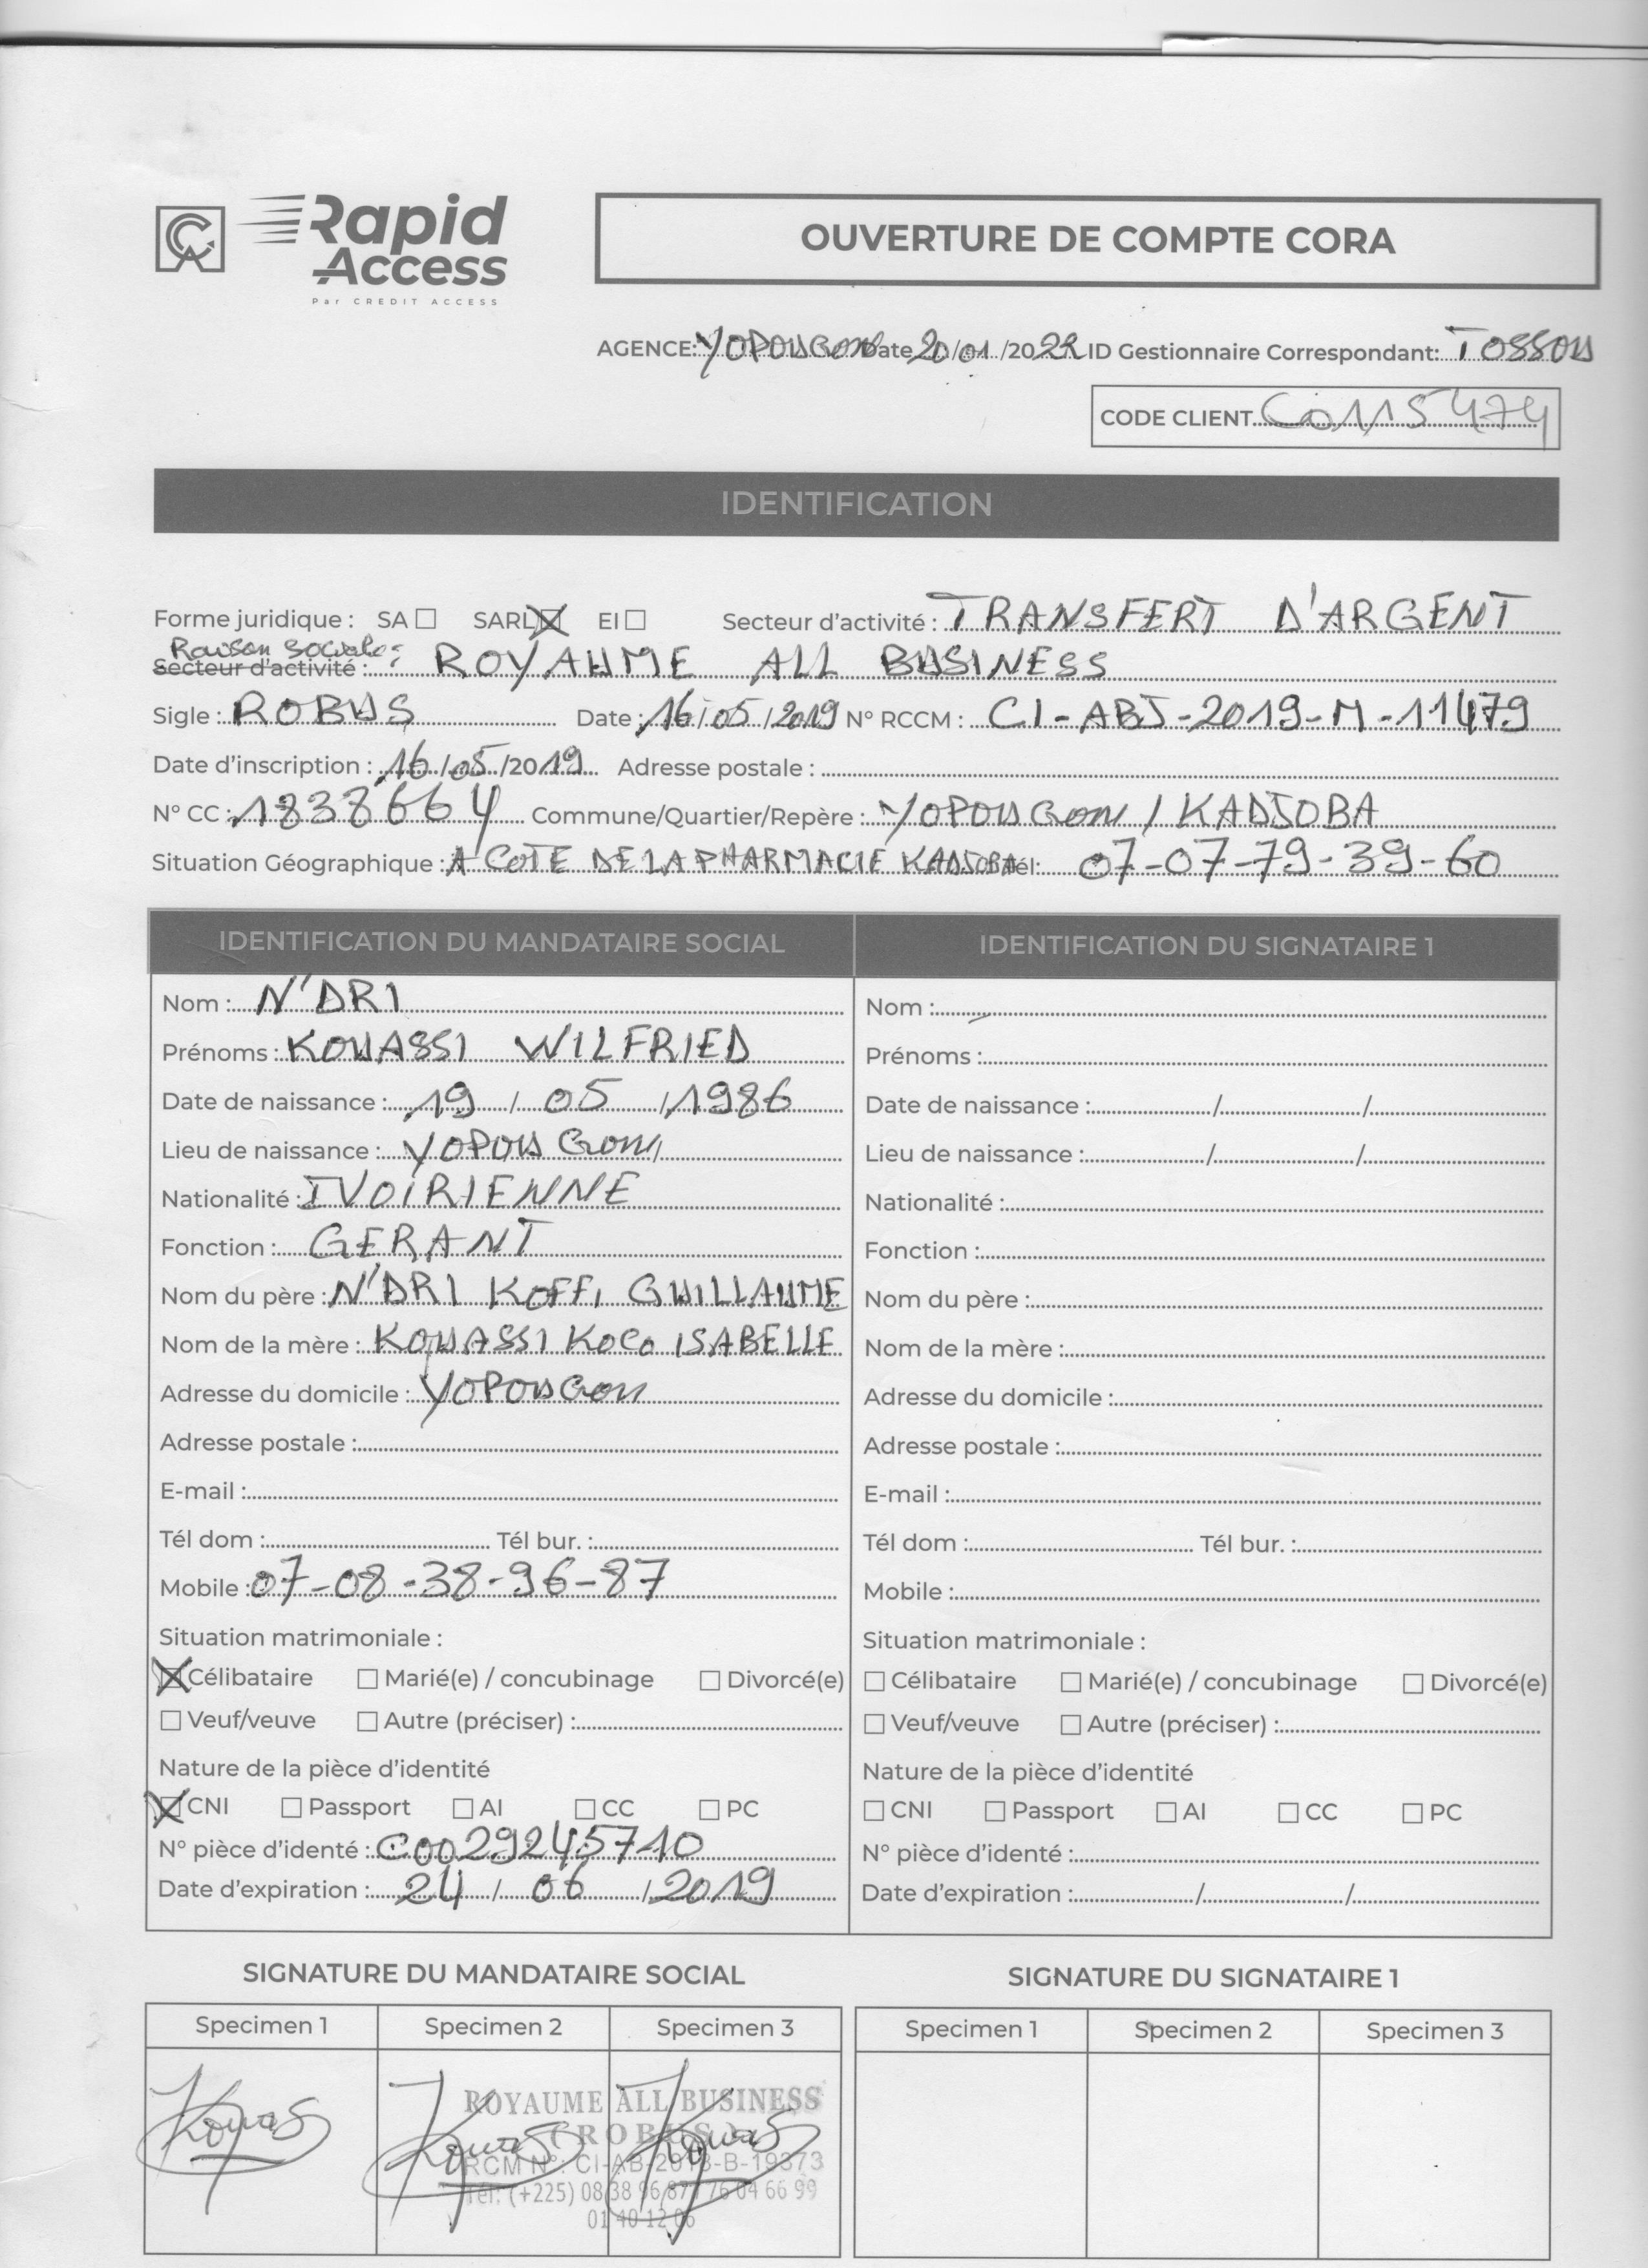 Rapid Access
Par CREDIT ACCESS
OUVERTURE DE COMPTE CORA
AGENCE: YOPOUGON Date 20/01/2022 ID Gestionnaire Correspondant: TOSSOU
CODE CLIENT C0115474
IDENTIFICATION
Forme juridique : SA ☐ SARL ☒ EI ☐ Secteur d'activité : TRANSFERT D'ARGENT
Raison sociale :
Secteur d'activité : ROYAUME ALL BUSINESS
Sigle : ROBUS Date : 16/05/2019 N° RCCM : CI-ABJ-2019-M-11479
Date d'inscription : 16/05/2019 Adresse postale :
N° CC : 1838664 Commune/Quartier/Repère : YOPOUGON / KADJOBA
Situation Géographique : A COTE DE LA PHARMACIE KADJOBA Tél: 07-07-79-39-60
IDENTIFICATION DU MANDATAIRE SOCIAL
Nom : N'DRI
Prénoms : KOUASSI WILFRIED
Date de naissance : 19 / 05 / 1986
Lieu de naissance : YOPOUGON
Nationalité : IVOIRIENNE
Fonction : GERANT
Nom du père : N'DRI KOFFI GUILLAUME
Nom de la mère : KOUASSI KOCO ISABELLE
Adresse du domicile : YOPOUGON
Adresse postale :
E-mail :
Tél dom : Tél bur. :
Mobile : 07-08-38-96-87
Situation matrimoniale :
☒ Célibataire ☐ Marié(e) / concubinage ☐ Divorcé(e)
☐ Veuf/veuve ☐ Autre (préciser) :
Nature de la pièce d'identité
☒ CNI ☐ Passport ☐ AI ☐ CC ☐ PC
N° pièce d'identé : C0029245710
Date d'expiration : 24 / 06 / 2019
IDENTIFICATION DU SIGNATAIRE 1
Nom :
Prénoms :
Date de naissance : / /
Lieu de naissance : / /
Nationalité :
Fonction :
Nom du père :
Nom de la mère :
Adresse du domicile :
Adresse postale :
E-mail :
Tél dom : Tél bur. :
Mobile :
Situation matrimoniale :
☐ Célibataire ☐ Marié(e) / concubinage ☐ Divorcé(e)
☐ Veuf/veuve ☐ Autre (préciser) :
Nature de la pièce d'identité
☐ CNI ☐ Passport ☐ AI ☐ CC ☐ PC
N° pièce d'identé :
Date d'expiration : / /
SIGNATURE DU MANDATAIRE SOCIAL
Specimen 1 Specimen 2 Specimen 3
ROYAUME ALL BUSINESS
(ROBUS)
RCM N°: CI-AB-2018-B-19373
Tél: (+225) 08 38 96 87 / 76 04 66 99
01 40 12 06
SIGNATURE DU SIGNATAIRE 1
Specimen 1 Specimen 2 Specimen 3